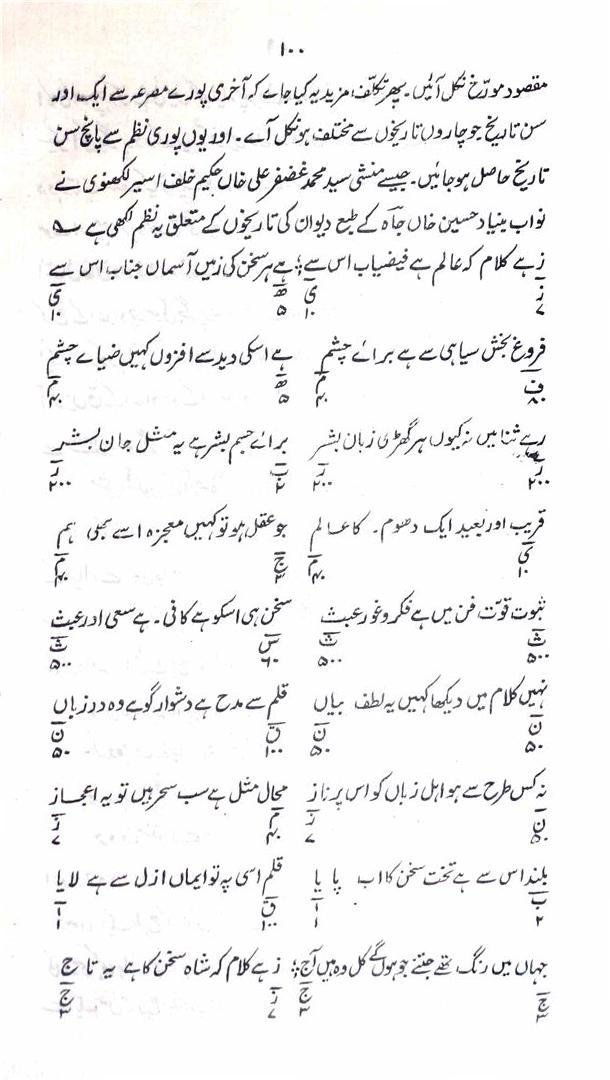 ۱۰۰
مقصود مورّخ نکل آئیں۔ پھر تکلّف مزید یہ کیا جاے کہ آخری پورے مصرعہ سے ایک اور
سن تاریخ جو چاروں تاریخوں سے مختلف ہو نکل آے۔ اور یوں پوری نظم سے پانچ سن
تاریخ حاصل ہو جائیں۔ جیسے منشی سید محمد غضنفر علی خاں حکیم خلف اسیر لکھنوی نے
نواب بنیاد حسین خاں جاہ کے طبع دیوان کی تاریخوں کے متعلق یہ نظم لکھی ہے ؎
زہے کلام کہ عالم ہے فیضیاب اس سے ؛ ہے ہر سخن کی زمیں آسماں جناب اس سے
ز ی ھ ی
۷ ۱۰ ۵ ۱۰
فروغ بخش سیاہی سے ہے برائے چشم ہے اسکی دید سے افزوں کہیں ضیاے چشم
ف م ھ م
۸۰ ۴۰ ۵ ۴۰
رہے ثنا میں نہ کیوں ہر گھڑی زبان بشر برائے جسم بشر ہے یہ مثل جان بشر
ر ر ب ر
۲۰۰ ۲۰۰ ۲ ۲۰۰
قریب اور بعید ایک دھوم۔ کا عالم جو عقل ہو تو کہیں معجزہ اسے بھی ہم
ی م ج م
۱۰ ۴۰ ۳ ۴۰
ثبوت قوّت فن میں ہے فکر و غور عبث سخن ہی اسکو ہے کافی۔ ہے سعی اور عبث
ث ث س ث
۵۰۰ ۵۰۰ ۶۰ ۵۰۰
نہیں کلام میں دیکھا کہیں یہ لطف بیاں قلم سے مدح ہے دشوار گو ہے وہ دو زباں
ن ن ق ن
۵۰ ۵۰ ۱۰۰ ۵۰
نہ کس طرح سے ہو اہل زباں کو اس پر ناز محال مثل ہے سب سحر ہیں تو یہ اعجاز
ن ز م ز
۵۰ ۷ ۴۰ ۷
بلند اس سے ہے تخت سخن کا اب پایا قلم اسی پہ تو ایماں ازل سے ہے لایا
ب ا ق ا
۲ ۱ ۱۰۰ ۱
جہاں میں رنگ تھے جتنے جو ہوں گے کل وہ ہیں آج ؛ زہے کلام کہ شاہ سخن کا ہے یہ تاج
ج ج ز ج
۳ ۳ ۷ ۳